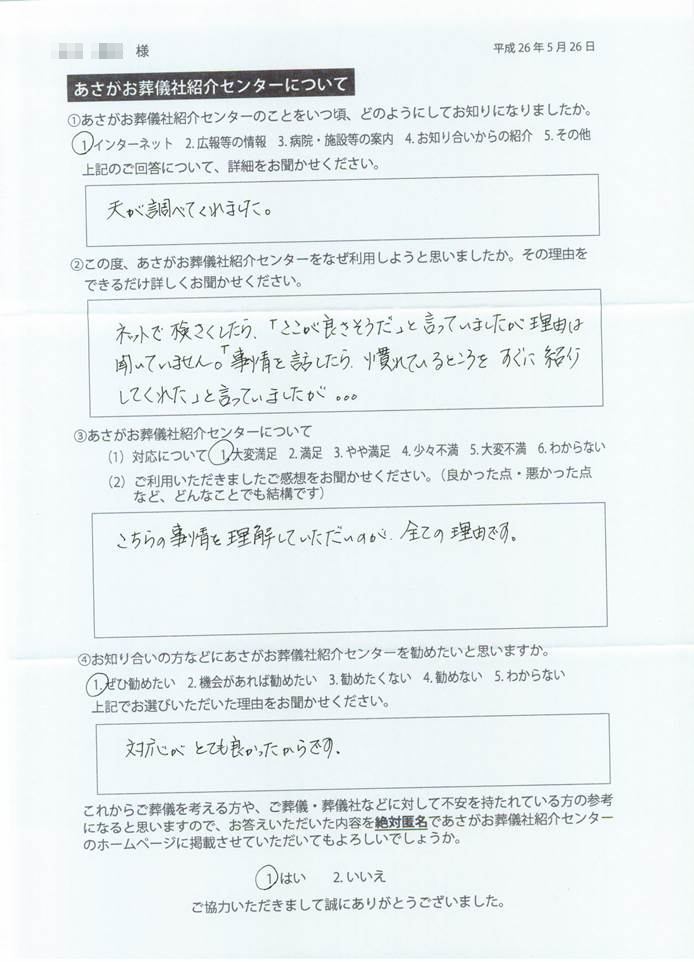 様
平成 26 年 5 月 26 日
あさがお葬儀社紹介センターについて
①あさがお葬儀社紹介センターのことをいつ頃、どのようにしてお知りになりましたか。
1 インターネット 2. 広報等の情報 3. 病院・施設等の案内 4. お知り合いからの紹介 5. その他
上記のご回答について、詳細をお聞かせください。
夫が調べてくれました。
②この度、あさがお葬儀社紹介センターをなぜ利用しようと思いましたか。その理由を
できるだけ詳しくお聞かせください。
ネットで検さくしたら、「ここが良さそうだ」と言っていましたが理由は
聞いていません。「事情を話したら、慣れているところをすぐに紹介
してくれた」と言っていましたが...
③あさがお葬儀社紹介センターについて
（1）対応について 1. 大変満足 2. 満足 3. やや満足 4. 少々不満 5. 大変不満 6. わからない
（2）ご利用いただきましたご感想をお聞かせください。（良かった点・悪かった点
など、どんなことでも結構です）
こちらの事情を理解していただいのが、全ての理由です。
④お知り合いの方などにあさがお葬儀社紹介センターを勧めたいと思いますか。
1. ぜひ勧めたい 2. 機会があれば勧めたい 3. 勧めたくない 4. 勧めない 5. わからない
上記でお選びいただいた理由をお聞かせください。
対応がとても良かったからです。
これからご葬儀を考える方や、ご葬儀・葬儀社などに対して不安を持たれている方の参考
になると思いますので、お答えいただいた内容を絶対匿名であさがお葬儀社紹介センター
のホームページに掲載させていただいてもよろしいでしょうか。
1 はい 2. いいえ
ご協力いただきまして誠にありがとうございました。